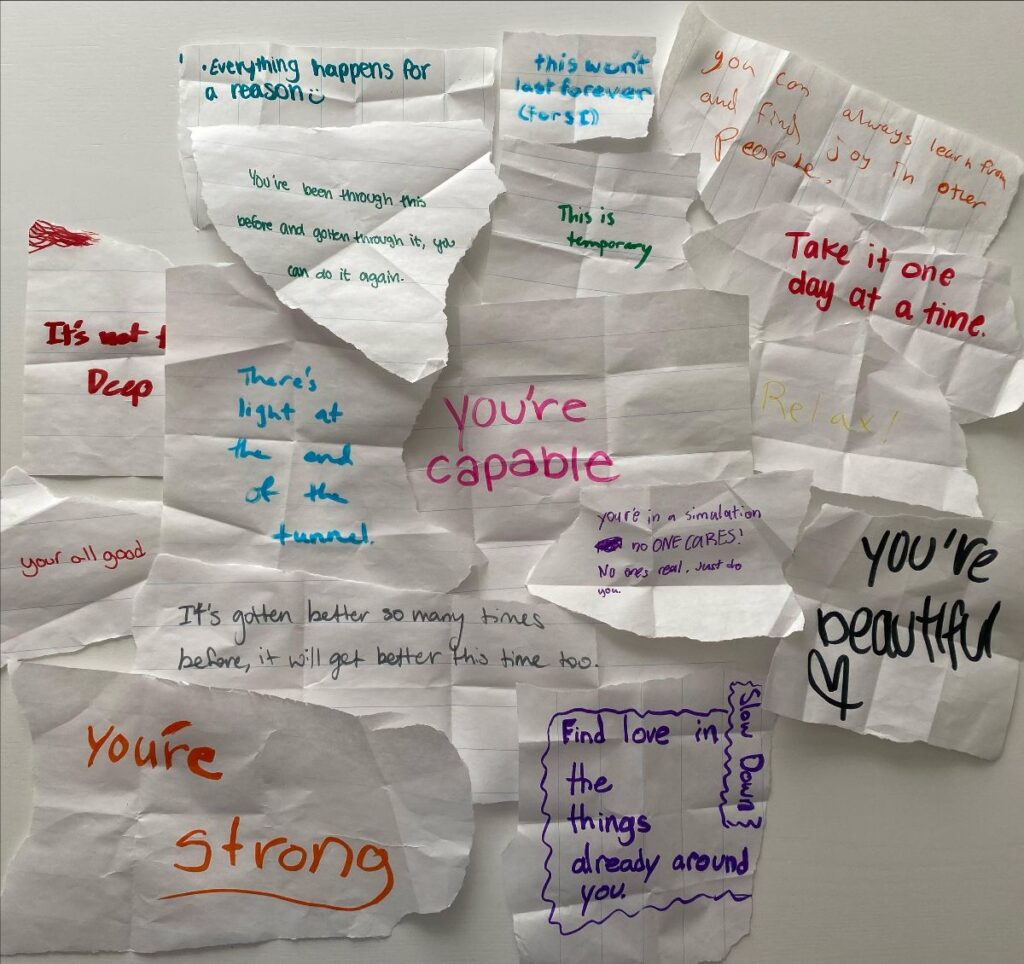 • Everything happens for
a reason
this won't
last forever
you can always learn from
and find joy in other
People.
You've been through this
before and gotten through it, you
can do it again.
This is
temporary
Take it one
day at a time.
It's not
Deep
There's
light at
the end
of the
tunnel.
you're
capable
Relax!
your all good
you're in a simulation
no ONE CARES!
No ones real, Just do
you.
you're
beautiful
It's gotten better so many times
before, it will get better this time too.
You're
strong
Slow Down
Find love in
the
things
already around
you.